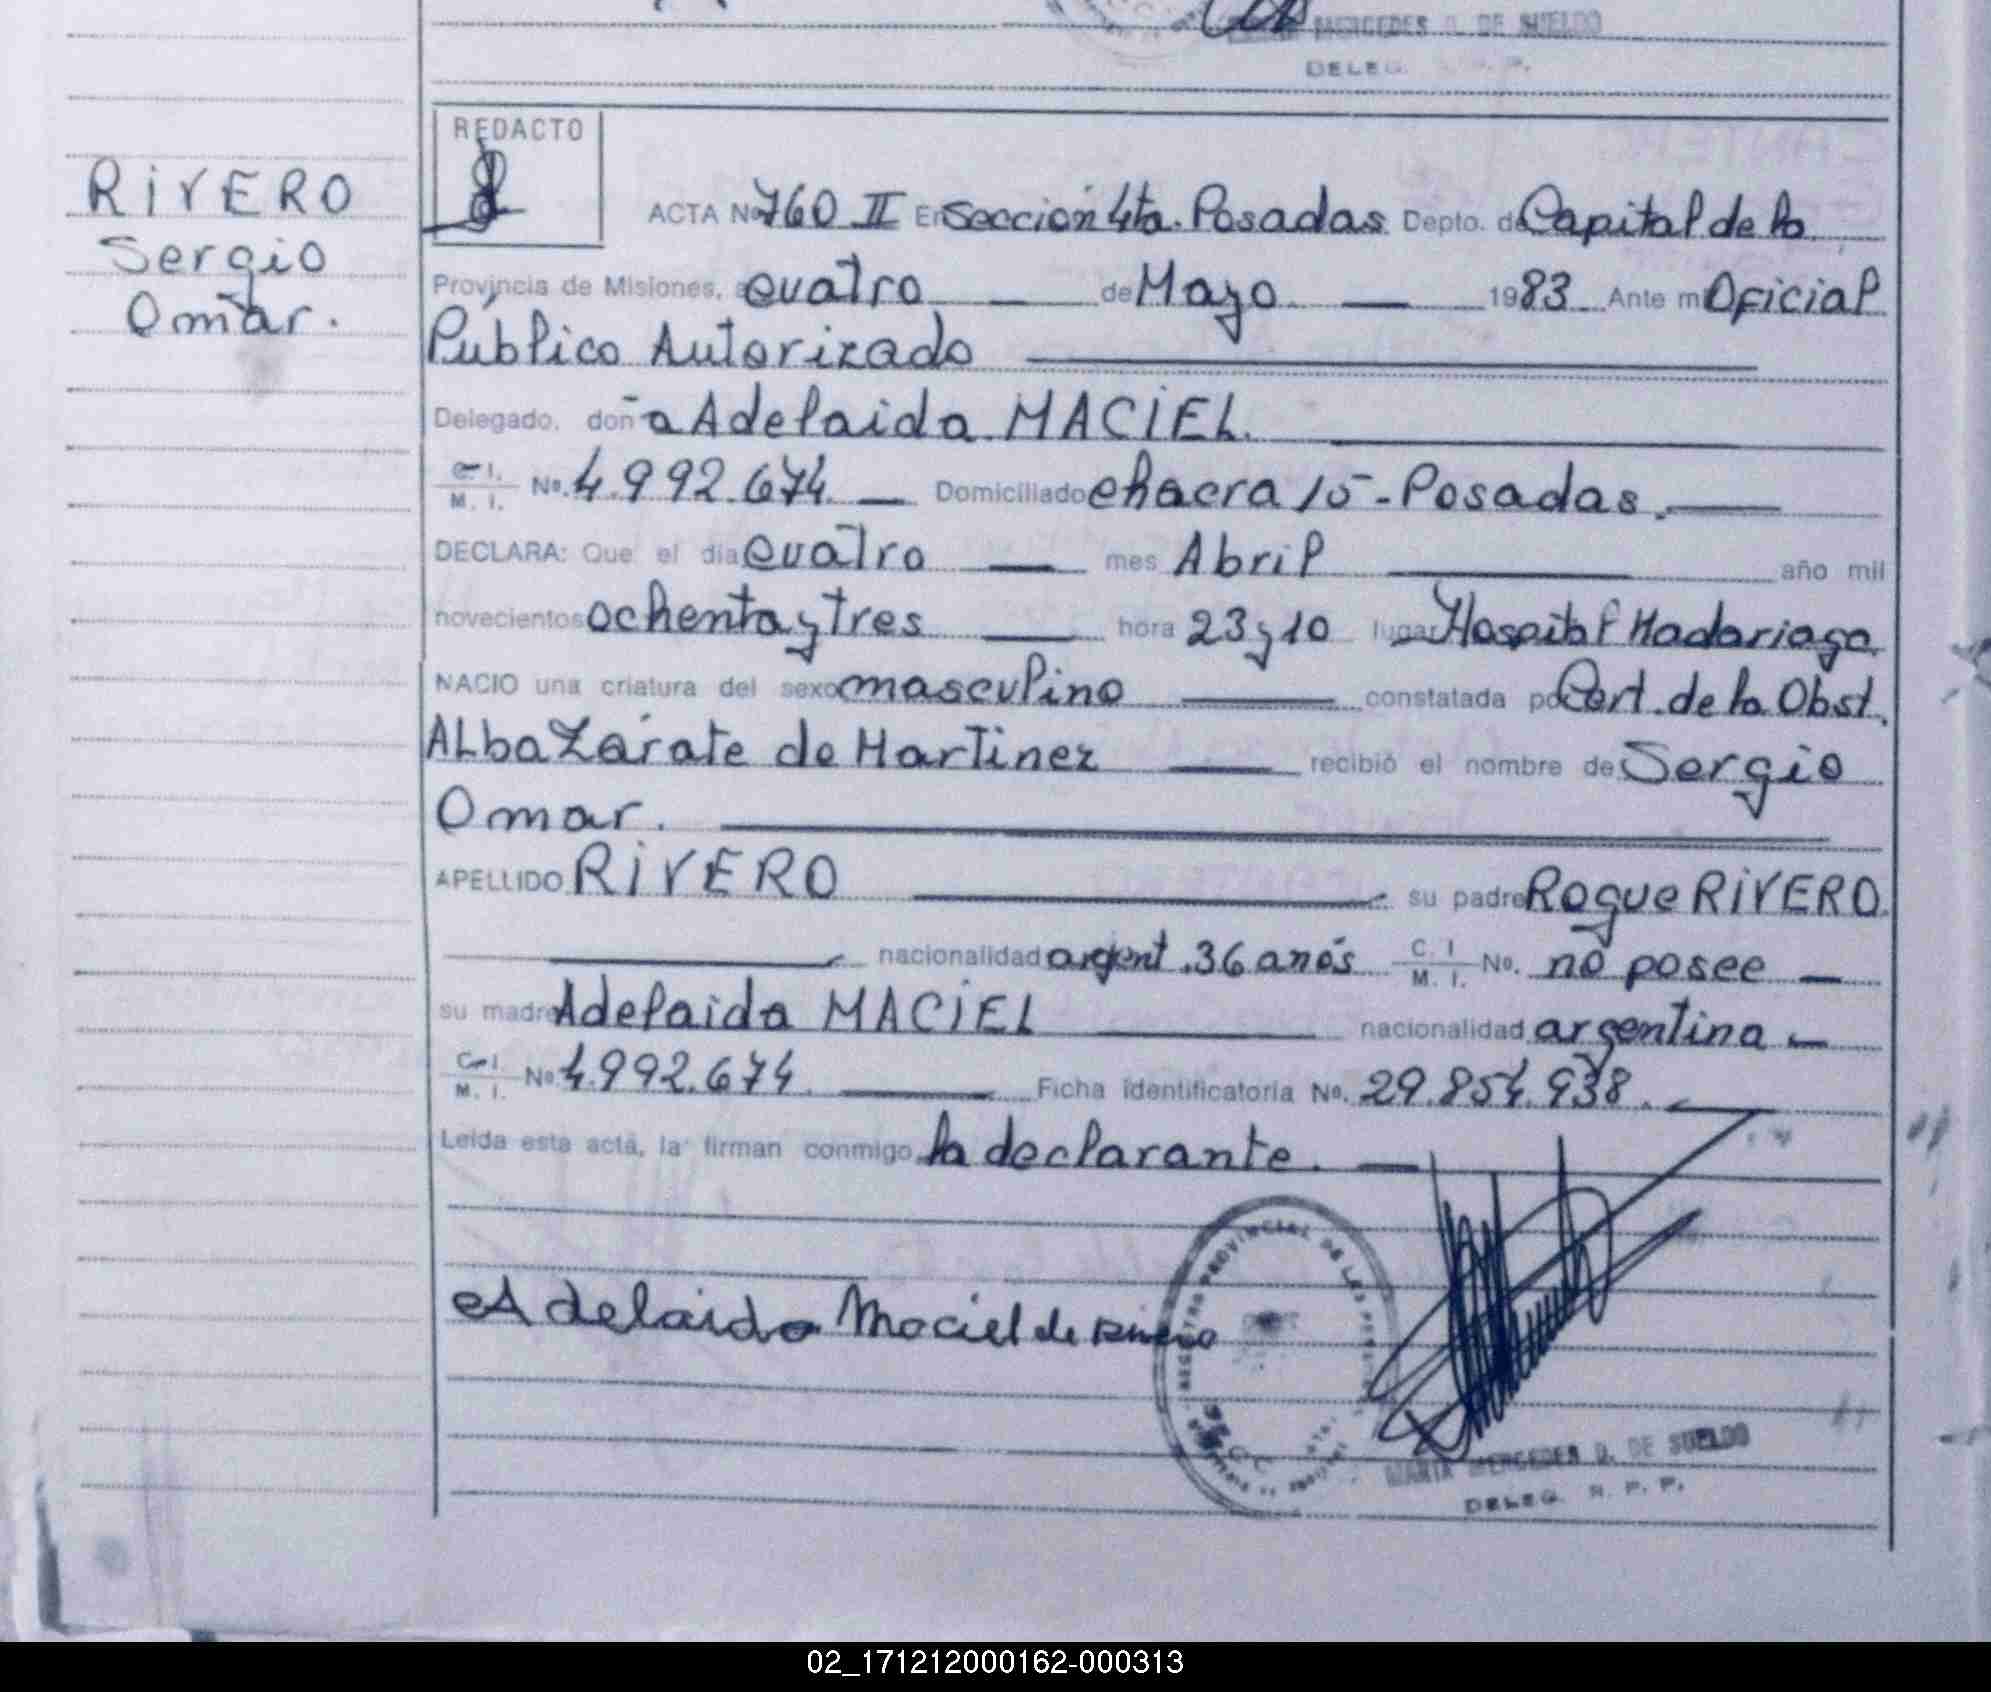 MERCEDES D. DE SUELDO
DELEG.
REDACTO
RIVERO
Sergio
Omar.
ACTA No 760 II En Sección 4ta. Posadas Depto. de Capital de la
Provincia de Misiones, a cuatro de Mayo 1983 Ante mi Oficial
Público Autorizado
Delegado, doña Adelaida MACIEL.
C. I.
M. I. No. 4.992.674. Domiciliado chacra 15 - Posadas.
DECLARA: Que el dia cuatro mes Abril año mil
novecientos ochenta y tres hora 23 y 10 lugar Hospital Madariaga
NACIO una criatura del sexo masculino constatada por Cert. de la Obst.
Alba Zárate de Martinez recibió el nombre de Sergio
Omar.
APELLIDO RIVERO su padre Roque RIVERO.
nacionalidad argent. 36 años C. I. M. I. No. no posee
su madre Adelaida MACIEL nacionalidad argentina
C. I. M. I. No 4.992.674. Ficha identificatoria No. 29.854.938.
Leida esta acta, la firman conmigo la declarante.
Adelaida Maciel de Rivero
REGISTRO PROVINCIAL DE LAS
MARIA MERCEDES D. DE SUELDO
DELEG. R. P. P.
02_171212000162-000313